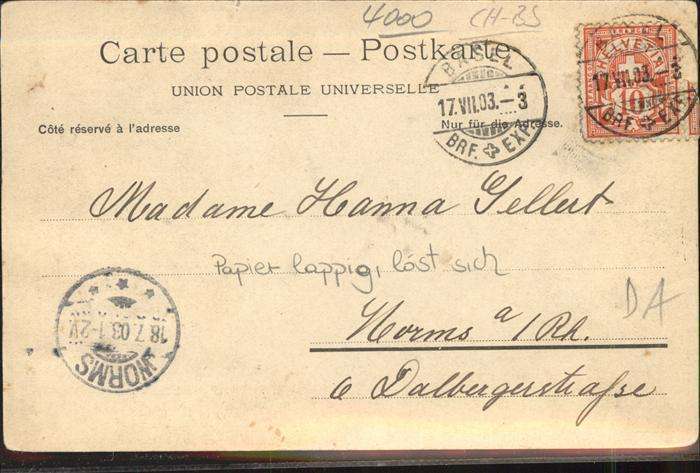 4000 CH-BS
Carte postale — Postkarte
UNION POSTALE UNIVERSELLE
Côté réservé à l'adresse
Nur für die Adresse.
BASEL
17.VII.03.–3
BRF. EXP.
HELVETIA
FRANCO
10
BASEL
17.VII.03.–3
BRF. EXP.
Madame Hanna Gellert
Papier lappig, löst sich
DA
Worms a/Rh.
6 Dalbergerstraße
WORMS
18.7.03.1-2V.